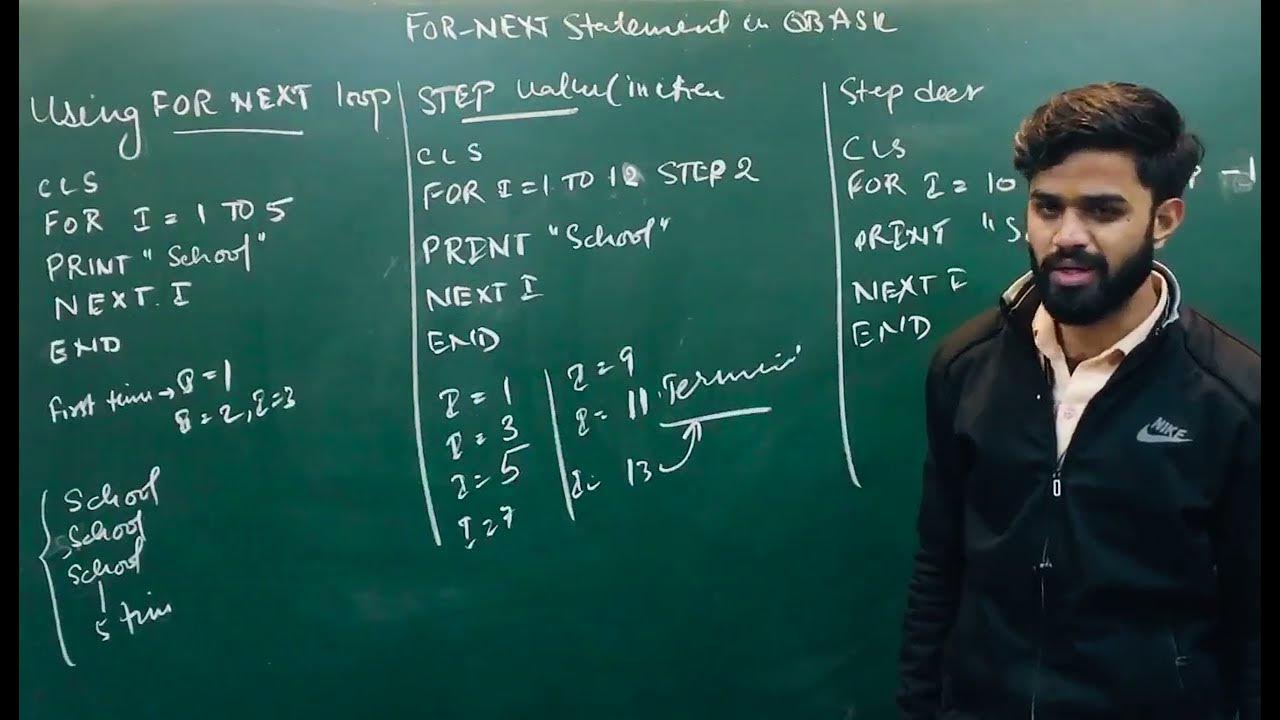 FOR-NEXT Statement in QBASIC
Using FOR NEXT loop
CLS
FOR I = 1 TO 5
PRINT "School"
NEXT I
END
first time → I = 1
I = 2, I = 3
School
School
School
5 tim
STEP value (incren
CLS
FOR I = 1 TO 12 STEP 2
PRINT "School"
NEXT I
END
I = 1
I = 3
I = 5
I = 7
I = 9
I = 11 Termin
I = 13
Step decr
CLS
FOR I = 10 P -1
PRINT "S
NEXT I
END
NIKE